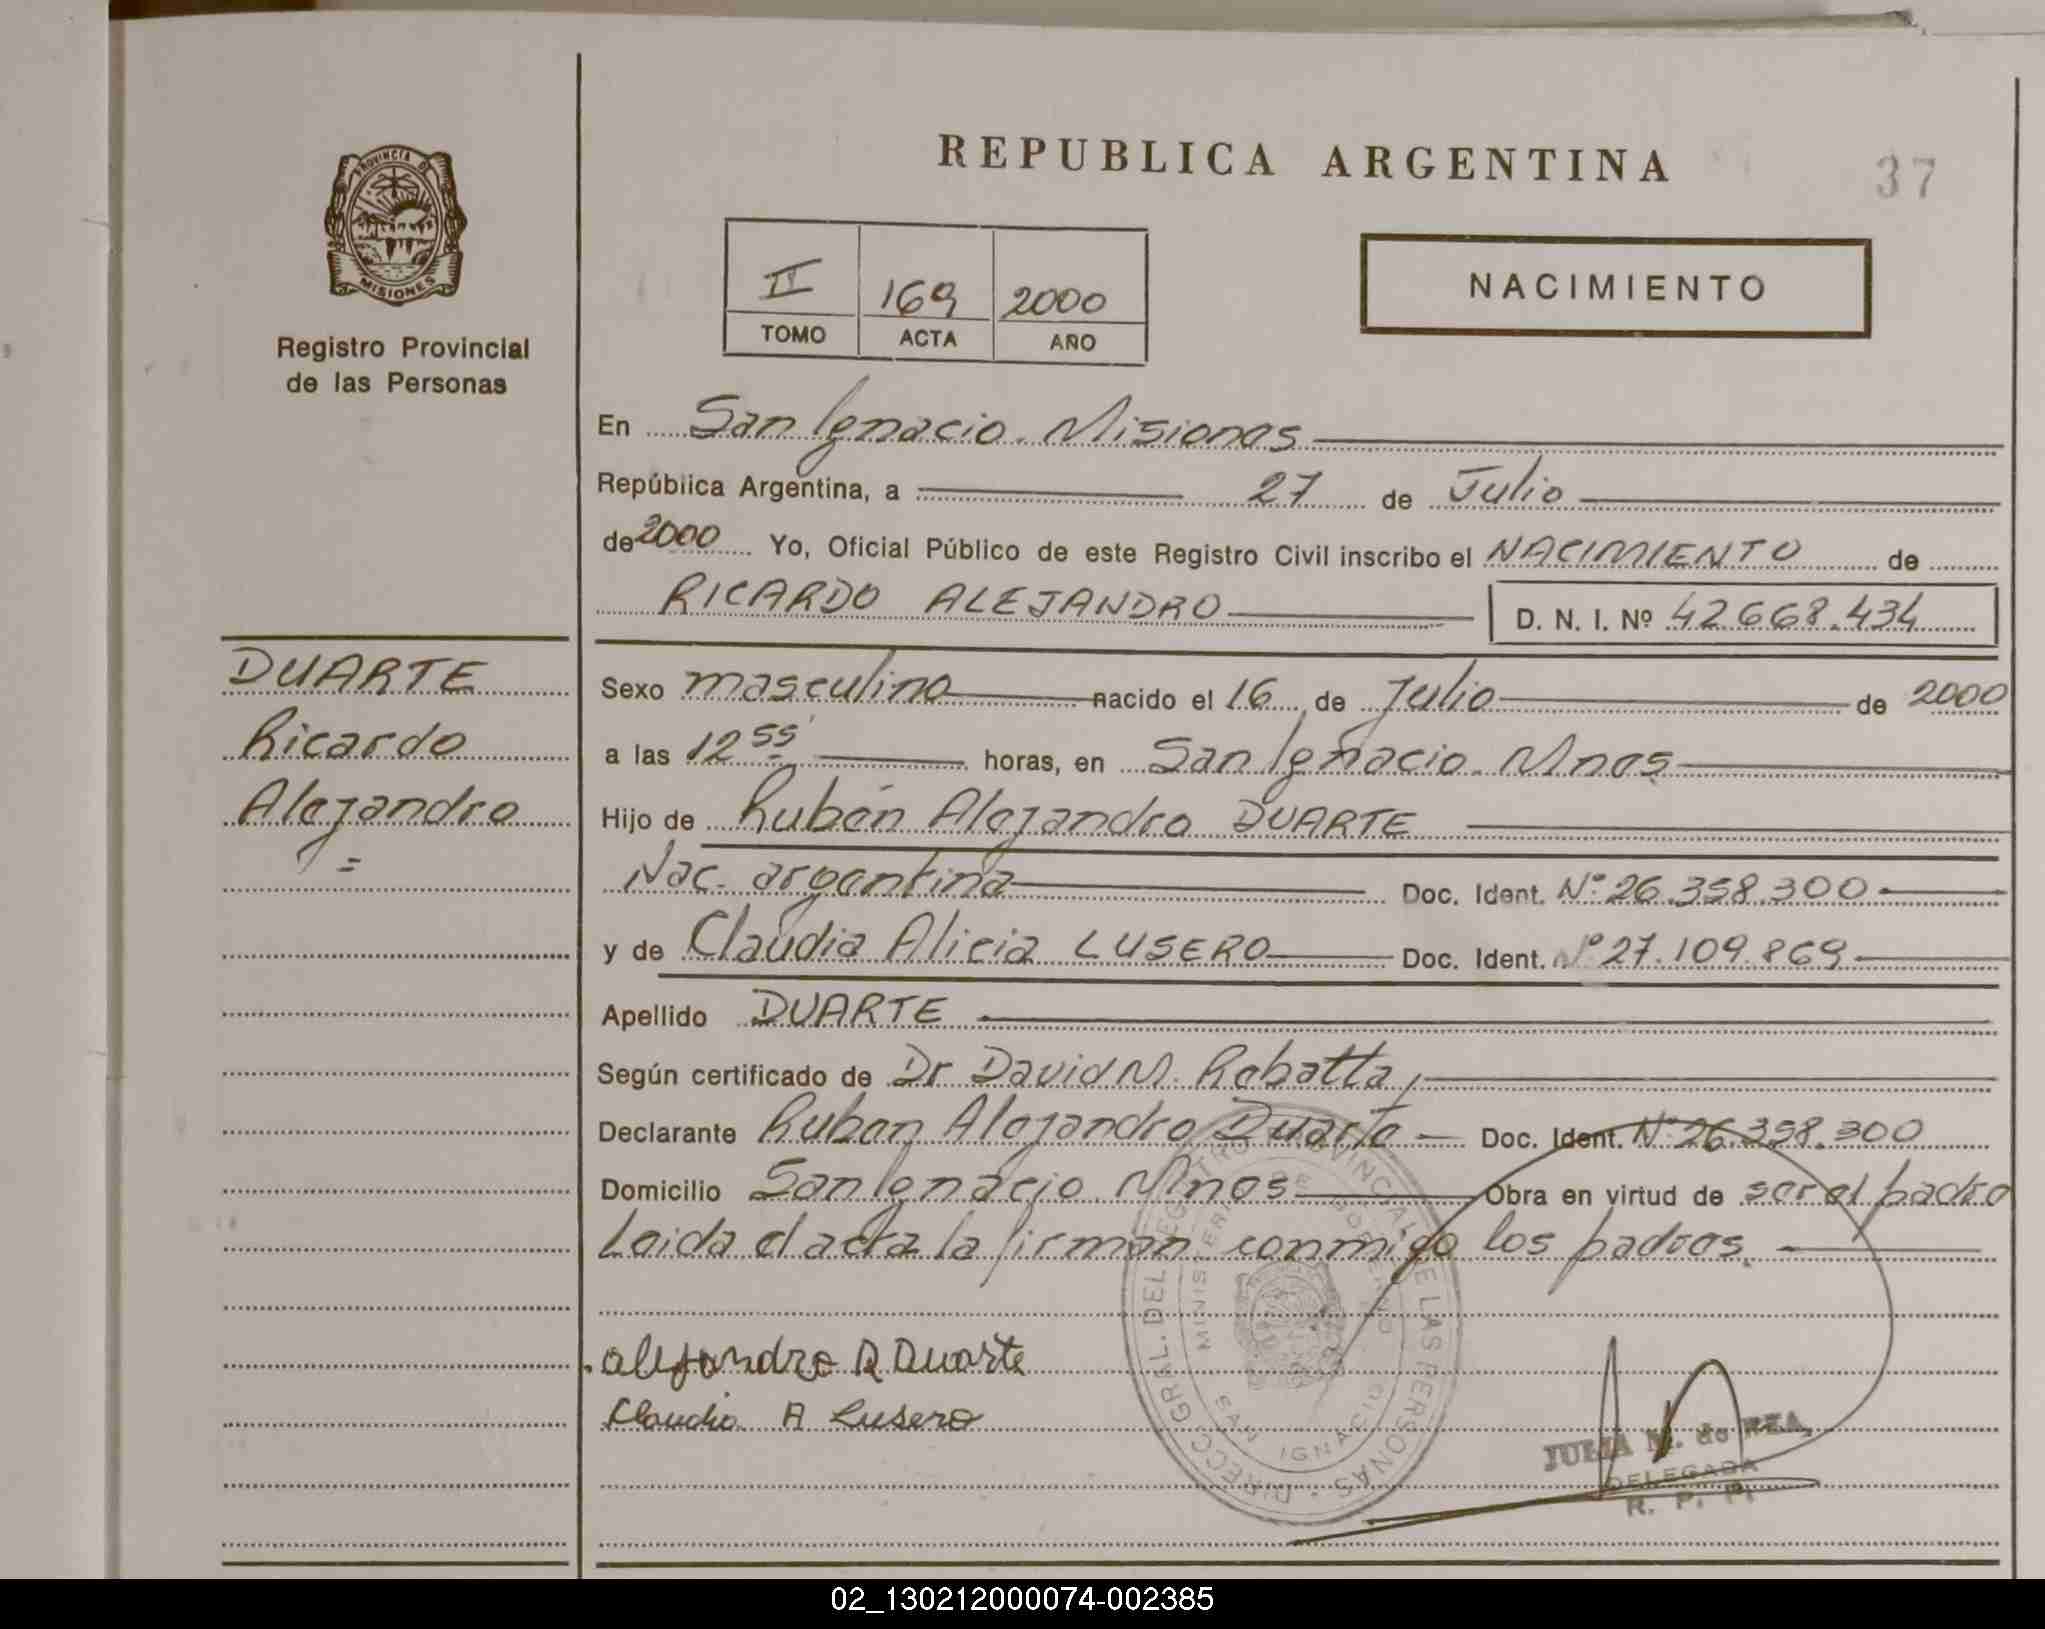 REPUBLICA ARGENTINA
37
PROVINCIA DE
MISIONES
Registro Provincial
de las Personas
II 169 2000
TOMO ACTA AÑO
NACIMIENTO
En San Ignacio. Misiones
República Argentina, a 27 de Julio
de 2000 Yo, Oficial Público de este Registro Civil inscribo el NACIMIENTO de
RICARDO ALEJANDRO D. N. I. Nº 42.668.434
DUARTE
Ricardo
Alejandro
=
Sexo masculino nacido el 16 de Julio de 2000
a las 12 55' horas, en San Ignacio. Mnes
Hijo de Rubén Alejandro DUARTE
Nac. argentina Doc. Ident. Nº 26.358.300
y de Claudia Alicia LUSERO Doc. Ident. Nº 27.109.869
Apellido DUARTE
Según certificado de Dr David M. Rebatta,
Declarante Ruben Alejandro Duarte Doc. Ident. Nº 26.358.300
Domicilio San Ignacio Mnes Obra en virtud de ser el padre
Leida el acta la firman conmigo los padres.
alejandro R Duarte
Claudia A Lusero
DIRECC GRAL. DEL REGISTRO PROVINCIAL DE LAS PERSONAS
MINISTERIO DE GOBIERNO
SAN IGNACIO
JULIA M. de REA
DELEGADA
R. P. P.
02_130212000074-002385